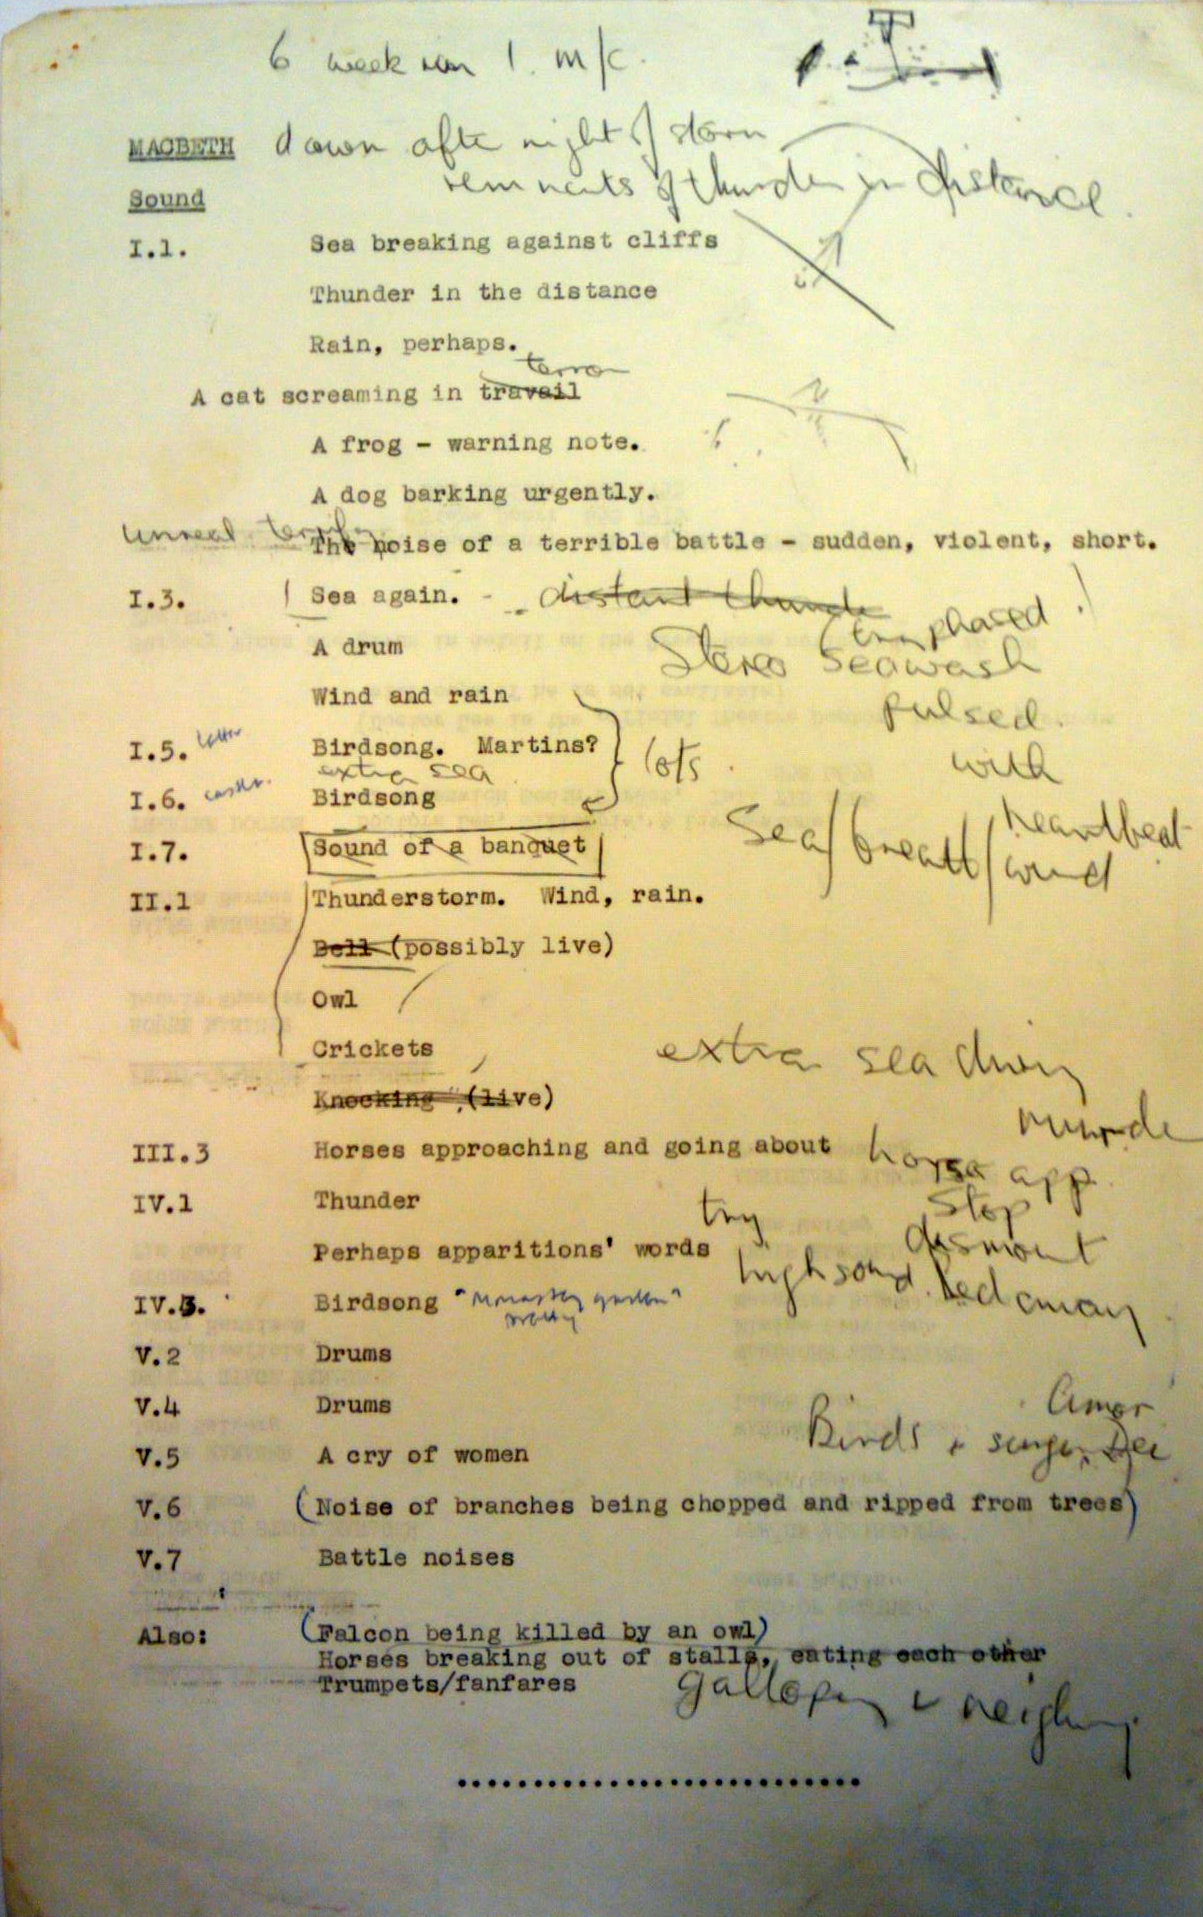 6 week run 1. m/c.
MACBETH dawn afte night of storm
remnents of thunder in distance.
Sound
I.1. Sea breaking against cliffs
Thunder in the distance
Rain, perhaps.
terror
A cat screaming in travail
A frog - warning note.
A dog barking urgently.
Unreal
The noise of a terrible battle - sudden, violent, short.
I.3. Sea again. - distant thunde
try phased
A drum Stereo seawash
Wind and rain pulsed.
I.5. letter Birdsong. Martins? lots. with
extra sea
I.6. Birdsong
heartbeat
I.7. Sound of a banquet Sea/breath/wind
II.1 Thunderstorm. Wind, rain.
Bell (possibly live)
Owl
Crickets extra sea during
Knocking (live) murder
III.3 Horses approaching and going about horse app.
IV.1 Thunder try stop
dismount
Perhaps apparitions' words high sound. led away
IV.3. Birdsong "Monastery garden"
V.2 Drums
V.4 Drums
Birds
V.5 A cry of women
V.6 (Noise of branches being chopped and ripped from trees)
V.7 Battle noises
Also: (Falcon being killed by an owl)
Horses breaking out of stalls, eating each other
Trumpets/fanfares galloping & neighing
...........................